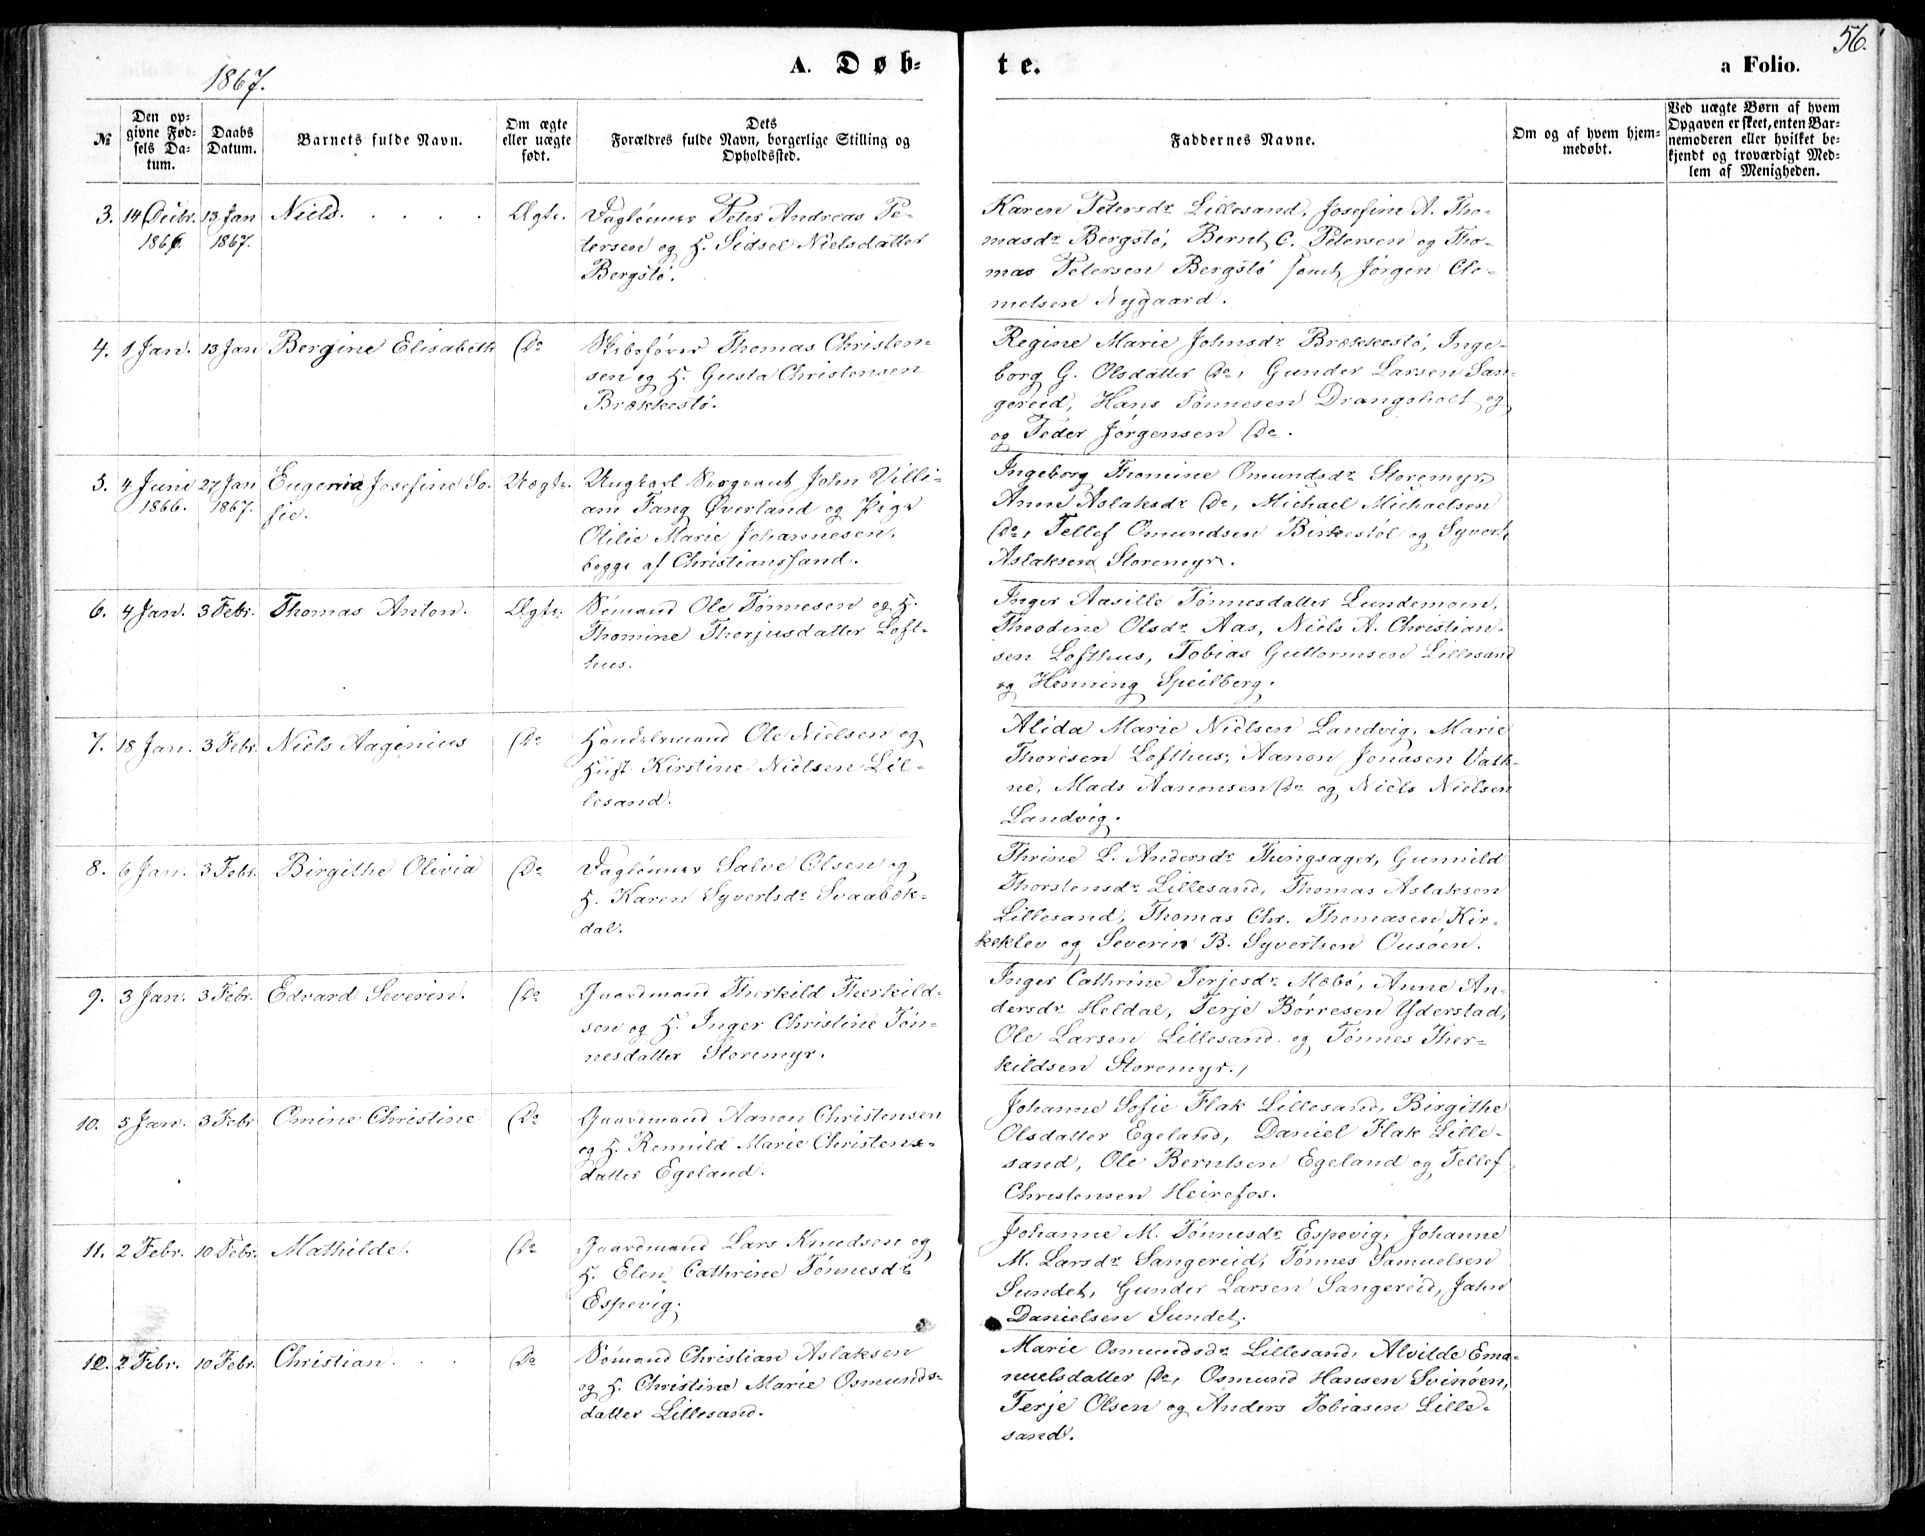 56.
1867.
A. Døb-
te.
a Folio.
№
Den op-
givne Fød-
sels Da-
tum.
Daabs
Datum.
Barnets fulde Navn.
Om ægte
eller uægte
født.
Dets
Forældres fulde Navn, borgerlige Stilling og
Opholdssted.
Faddernes Navne.
Om og af hvem hjem-
medøbt.
Ved uægte Børn af hvem
Opgaven er skeet, enten Bar-
nemoderen eller hvilket be-
kjendt og troværdigt Med-
lem af Menigheden.
3. 14 Decbr. 13 Jan Niels. . . . . Ægte.
1866 1867.
Daglønner Peter Andreas Pe-
tersen og H. Sidsel Nielsdatter
Bergstø.
Karen Petersdr Lillesand, Josefine A. Tho-
masdr Bergstø, Bernt C. Petersen og Tho-
mas Petersen Bergstø samt Jørgen Cle-
metsen Nygaard.
4. 1 Jan. 13 Jan Bergine Elisabeth Do
Skibsfører Thomas Christen-
sen og H. Gusta Christensen
Brækkestø.
Regine Marie Johnsdr Brækkestø, Inge-
borg G. Olsdatter Do, Gunder Larsen San-
gereid, Hans Tønnesen Drangsholt og
og Peder Jørgensen Do.
5. 4 Juni 27 Jan Eugenia Josefine So- Uægte.
1866. 1867. fie.
Ungkarl Sergeant John Villi-
am Fang Øverland og Pige
Otilie Marie Johannesen,
begge af Christianssand.
Ingeborg Thomine Omundsdr Storemyr,
Anne Aslaksdr Do, Michael Michaelsen
Do, Tellef Omundsen Birkestøl og Syvert
Aslaksen Storemyr.
6. 4 Jan. 3 Febr. Thomas Anton. Ægte.
Sømand Ole Tønnesen og H.
Thomine Thorjusdatter Loft-
hus.
Inger Aasille Tønnesdatter Lundemoen,
Theodine Olsdr Aas, Niels A. Christian-
sen Lofthus, Tobias Guttormsen Lillesand
og Henning Speilberg.
7. 18 Jan. 3 Febr. Niels Aagenius Do
Handelsmand Ole Nielsen og
Hust. Kirstine Nielsen Lil-
lesand.
Alida Marie Nielsen Landvig, Marie
Thoresen Lofthus, Aanon Jonasen Vath-
ne, Mads Aanonsen Do og Niels Nielsen
Landvig.
8. 6 Jan. 3 Febr. Birgithe Olivia Do
Daglønner Salve Olsen og
H. Karen Syvertsdr Svaabæk-
dal.
Thrine L. Andersdr Thingsager, Gunnild
Thorstensdr Lillesand, Thomas Aslaksen
Lillesand, Thomas Chr. Thomasen Kir-
keklev og Severin B. Syvertsen Ousøen.
9. 3 Jan. 3 Febr. Edvard Severin. Do
Gaardmand Therkild Therkild-
sen og H. Inger Christine Tøn-
nesdatter Storemyr.
Inger Cathrine Terjesdr Mæbø, Anne An-
dersdr Heldal, Terje Børresen Yderstad,
Ole Larsen Lillesand og Tønnes Ther-
kildsen Storemyr.
10. 5 Jan. 3 Febr Omine Christine Do
Gaardmand Aanon Christensen
og H. Rennild Marie Christens-
datter Egeland.
Johanne Sofie Flak Lillesand, Birgithe
Olsdatter Egeland, Daniel Flak Lille-
sand, Ole Berntsen Egeland og Tellef
Christensen Heirefos.
11. 2 Febr. 10 Febr. Mathilde. Do
Gaardmand Lars Knudsen og
H. Elen Cathrine Tønnesdr
Espevig.
Johanne M. Tønnesdr Espevig, Johanne
M. Larsdr Sangereid, Tønnes Samuelsen
Sundet, Gunder Larsen Sangereid, Jahn
Danielsen Sundet.
12. 2 Febr. 10 Febr. Christian. . . Do
Sømand Christian Aslaksen
og H. Christine Marie Osmunds-
datter Lillesand.
Marie Osmundsdr Lillesand, Alvilde Ema-
nuelsdatter Do, Osmund Hansen Svinøen,
Terje Olsen og Anders Tobiasen Lille-
sand.